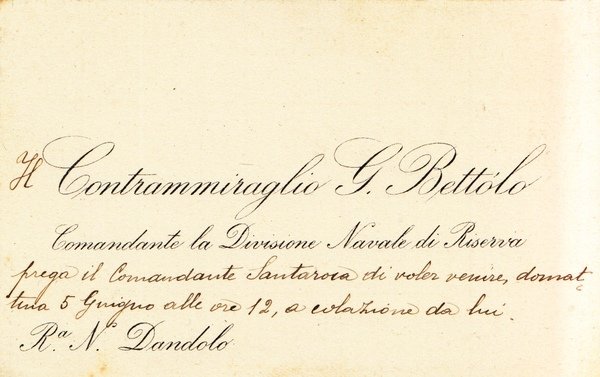 Il Contrammiraglio G. Bettólo
Comandante la Divisione Navale di Riserva
prega il Comandante Santarosa di voler venire, domat-
tina 5 Giugno alle ore 12, a colazione da lui.
R.ª N. Dandolo